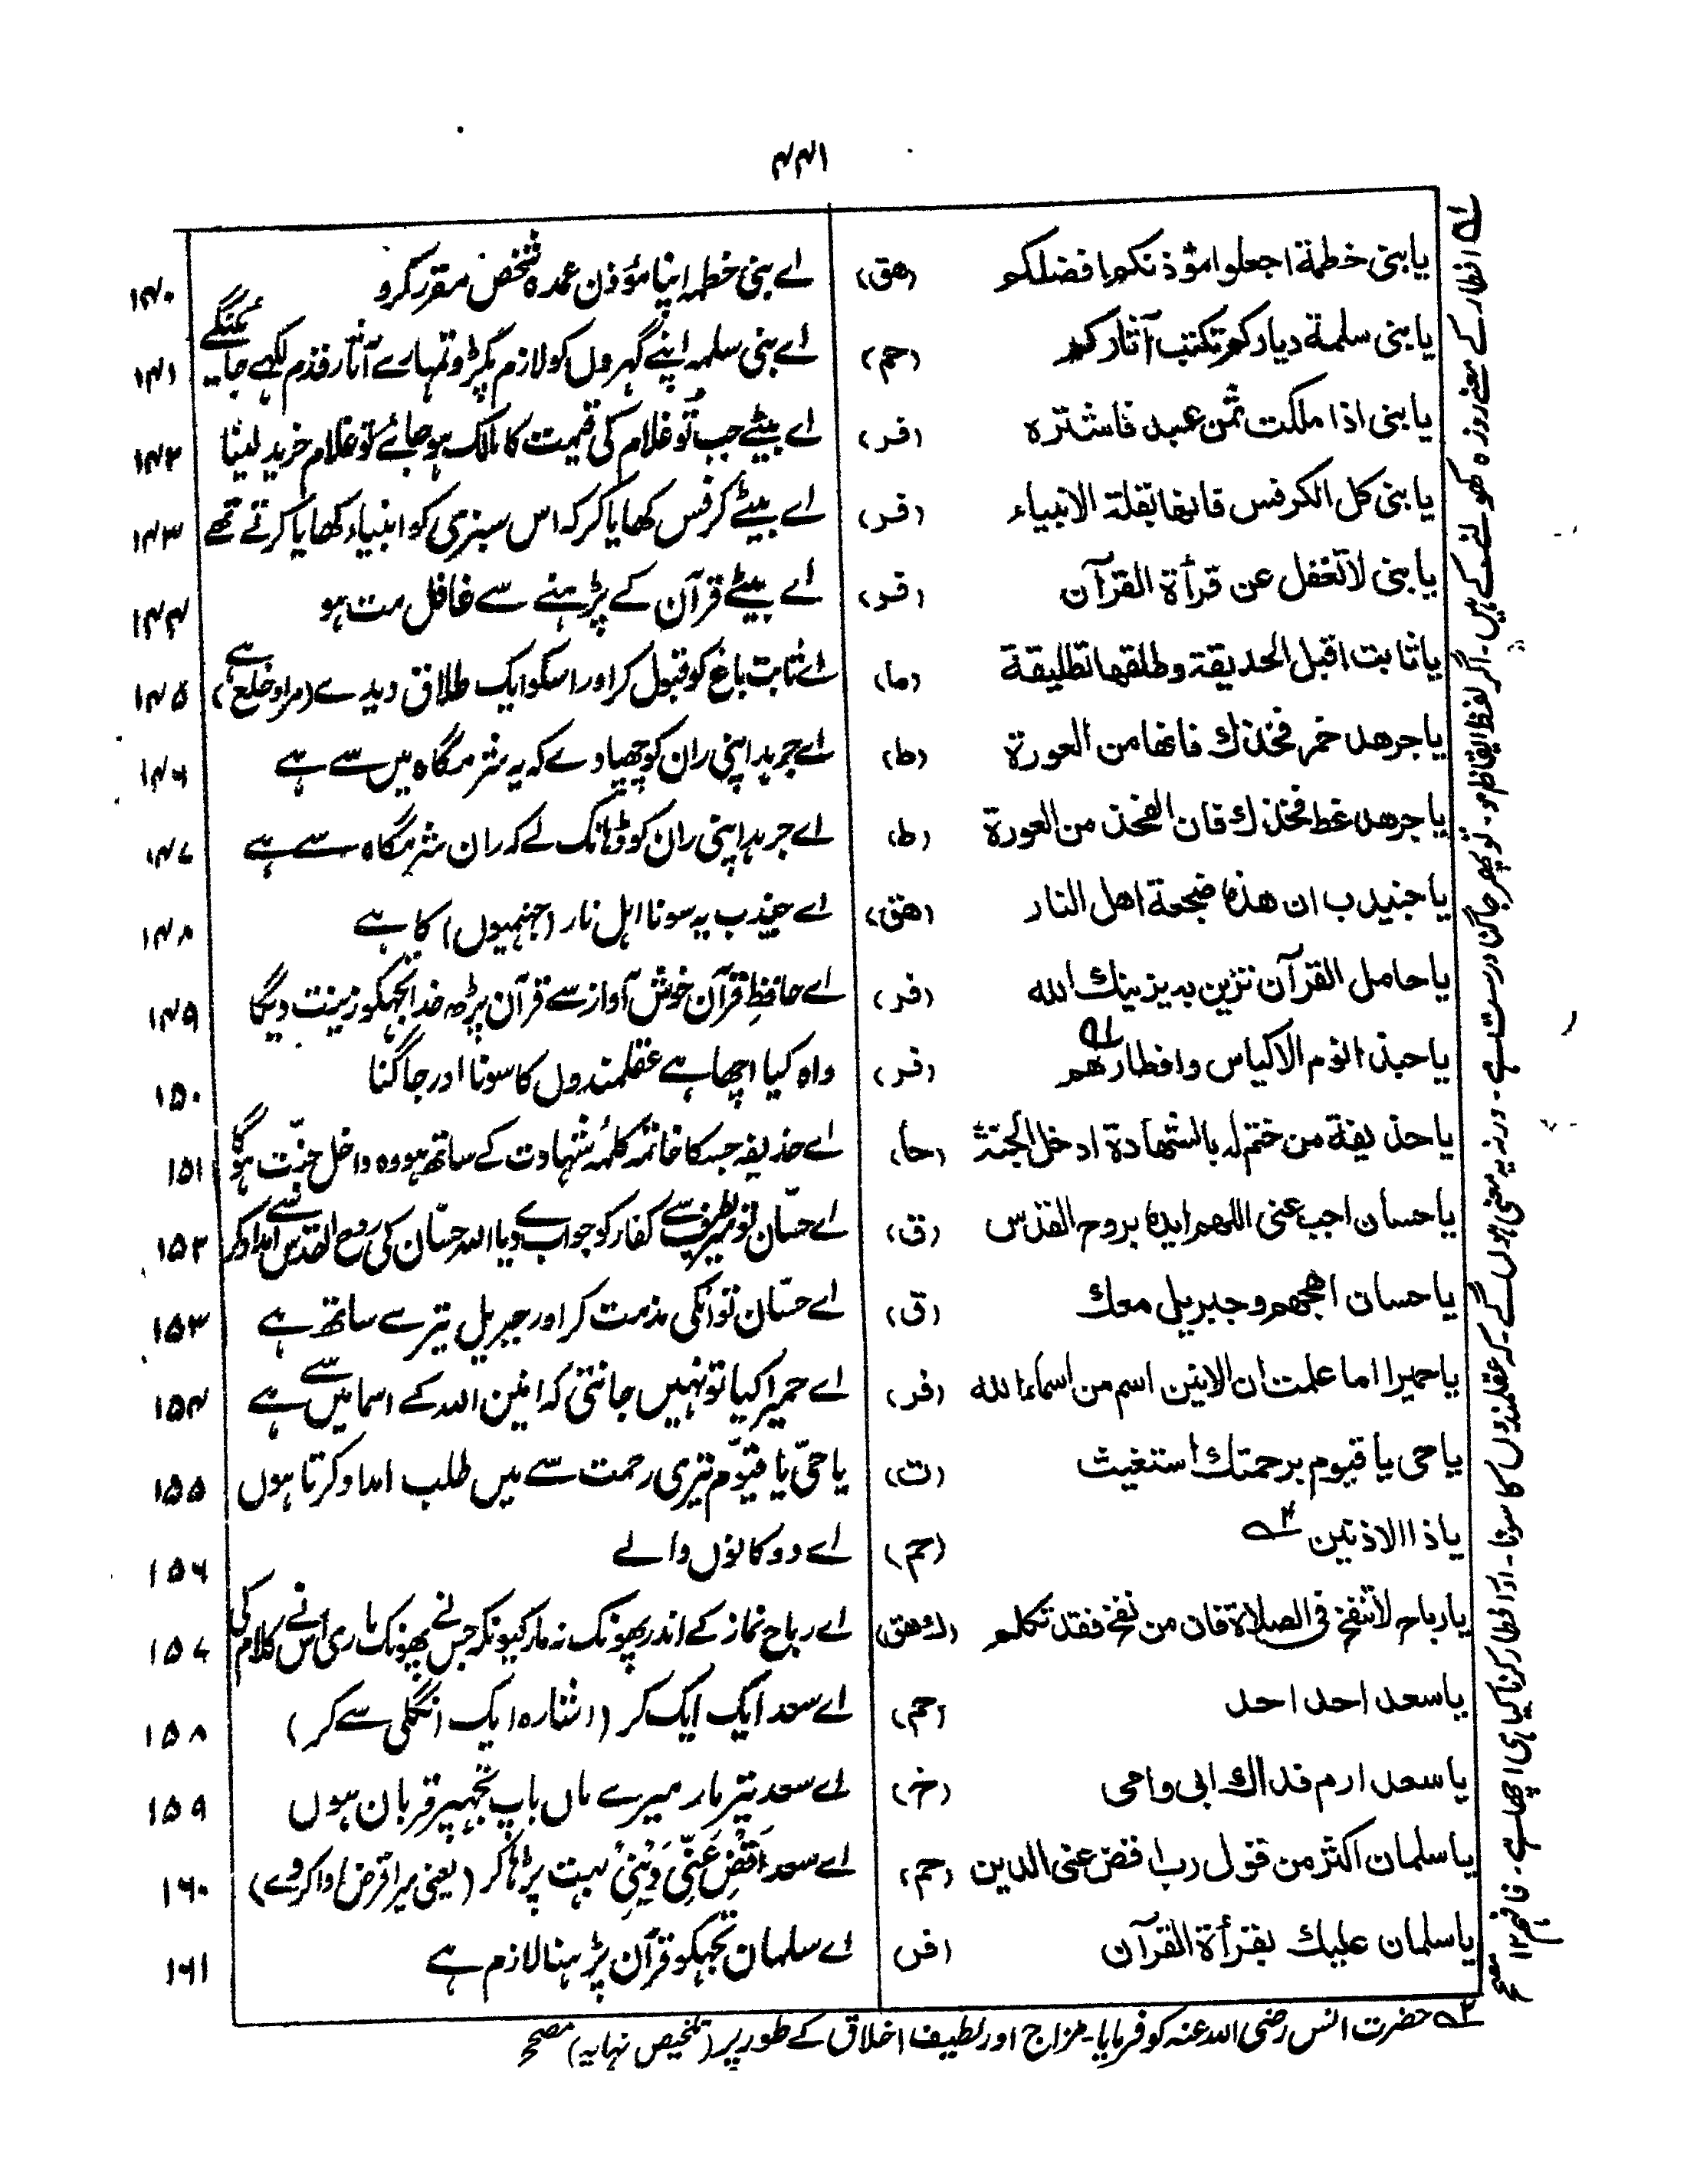 ۴۴۱
یابنی خطمة اجعلوا مؤذنکم افضلکم (هق) اے بنی خطمہ اپنا مؤذن عمدہ شخص مقرر کرو ۱۴۰
یابنی سلمة دیارکم تکتب آثارکم (حم) اے بنی سلمہ اپنے گہروں کو لازم پکڑو تمہارے آثار قدم لکہے جائینگے ۱۴۱
یابنی اذا ملکت ثمن عبد فاشترہ (فر) اے بیٹے جب تُو غلام کی قیمت کا مالک ہو جائے تو غلام خرید لینا ۱۴۲
یابنی کل الکرفس فانها بقلة الانبیاء (فر) اے بیٹے کرفس کھایا کر کہ اس سبزی کو انبیاء کھایا کرتے تھے ۱۴۳
یابنی لا تغفل عن قرأة القرآن (فر) اے بیٹے قرآن کے پڑہنے سے غافل مت ہو ۱۴۴
یا ثابت اقبل الحدیقة وطلقها تطلیقة (ما) اے ثابت باغ کو قبول کر اور اسکو ایک طلاق دیدے (مراد خلع ہے) ۱۴۵
یا جرهد خمر فخذك فانها من العورة (ط) اے جرہد اپنی ران کو چھپا دے کہ یہ شرمگاہ میں سے ہے ۱۴۶
یا جرهد غط فخذك فان الفخذ من العورة (ط) اے جرہد اپنی ران کو ڈہانک لے کہ ران شرمگاہ سے ہے ۱۴۷
یا جنیدب ان هذه ضجعة اهل النار (هق) اے جنیدب یہ سونا اہل نار (جہنمیوں) کا ہے ۱۴۸
یا حامل القرآن تزین به یزینك الله (فر) اے حافظِ قرآن خوش آواز سے قرآن پڑھ خدا تجہکو زینت دیگا ۱۴۹
یا حبذا نوم الاکیاس وافطارهم ۱ (فر) واہ کیا اچھا ہے عقلمندوں کا سونا اور جاگنا ۱۵۰
یا حذیفة من ختم له بالشهادة ادخل الجنة (حا) اے حذیفہ جسکا خاتمہ کلمۂ شہادت کے ساتھ ہو وہ داخل جنّت ہوگا ۱۵۱
یا حسان اجب عنی اللهم ایده بروح القدس (ق) اے حسّان تو میرے طرف سے کفار کو جواب دے یا اللہ حسّان کی روح القدس سے امداد کر ۱۵۲
یا حسان اهجهم وجبریل معك (ق) اے حسّان تو انکی مذمت کر اور جبریل تیرے ساتھ ہے ۱۵۳
یا حمیرا اما علمت ان الانین اسم من اسماء الله (فر) اے حمیرا کیا تو نہیں جانتی کہ انین اللہ کے اسما میں سے ہے ۱۵۴
یا حی یا قیوم برحمتك استغیث (ت) یا حیّ یا قیّوم تیری رحمت سے میں طلب امداد کرتا ہوں ۱۵۵
یا ذا الاذنین ۲ (حم) اے دو کانوں والے ۱۵۶
یا رباح لا تنفخ فی الصلاة فان من نفخ فقد تکلم (ك هق) اے رباح نماز کے اندر پھونک نہ مار کیونکہ جس نے پھونک ماری اس نے کلام کی ۱۵۷
یا سعد احد احد (حم) اے سعد ایک ایک کر (اشارہ ایک انگلی سے کر) ۱۵۸
یا سعد ارم فداك ابی وامی (خ) اے سعد تیر مار میرے ماں باپ تجہپر قربان ہوں ۱۵۹
یا سلمان اکثر من قول رب اقض عنی الدین (حم) اے سعد اَقْضِ عَنِّی دَیْنِی بہت پڑہا کر (یعنی میرا قرض ادا کر دے) ۱۶۰
یا سلمان علیك بقرأة القرآن (فر) اے سلمان تجہکو قرآن پڑہنا لازم ہے ۱۶۱
۱ افطار کے معنے روزہ کھولنے کے ہیں۔ اگر لفظ ایقاظ ہو۔ تو پھر جاگنا درست ہے۔ ورنہ یہ معنی ہوں گے۔ کہ عقلمندوں کا سونا۔ اور افطار کرنا کیا ہی اچھا ہے۔ فافہم ۱۲ مصحح
۲ حضرت انس رضی اللہ عنہ کو فرمایا۔ مزاح اور لطیف اخلاق کے طور پر (تلخیص نہایہ) مصحح